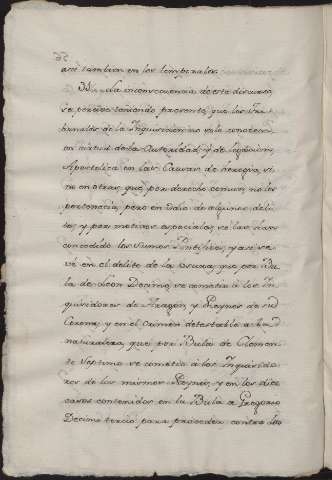 assi tambien en los temporales.
31. La inconsequencia de este discurso,
se percive teniendo presente, que los Tri-
bunales de la Inquisicion no solo conocen
en virtud de la Autoridad, y delegacion
Apostolica en las Causas de heregia, si-
no en otras que por derecho comun, no les
pertenecia, pero en odio de algunos deli-
tos, y por motivos especiales se las han
concedido los Sumos Pontifices, y assi se
vé en el delito de la Usura, que por Bu-
la de Leon Decimo, se cometió à los In-
quisidores de Aragon, y Reynos de su
Corona, y en el Crimen detestable
naturaleza, que por Bula de Clemen-
te Septimo se cometió à los Inquisido-
res de los mismos Reynos, y en los diez
casos contenidos en la Bula de Gregorio
Decimo tercio para proceder contra los